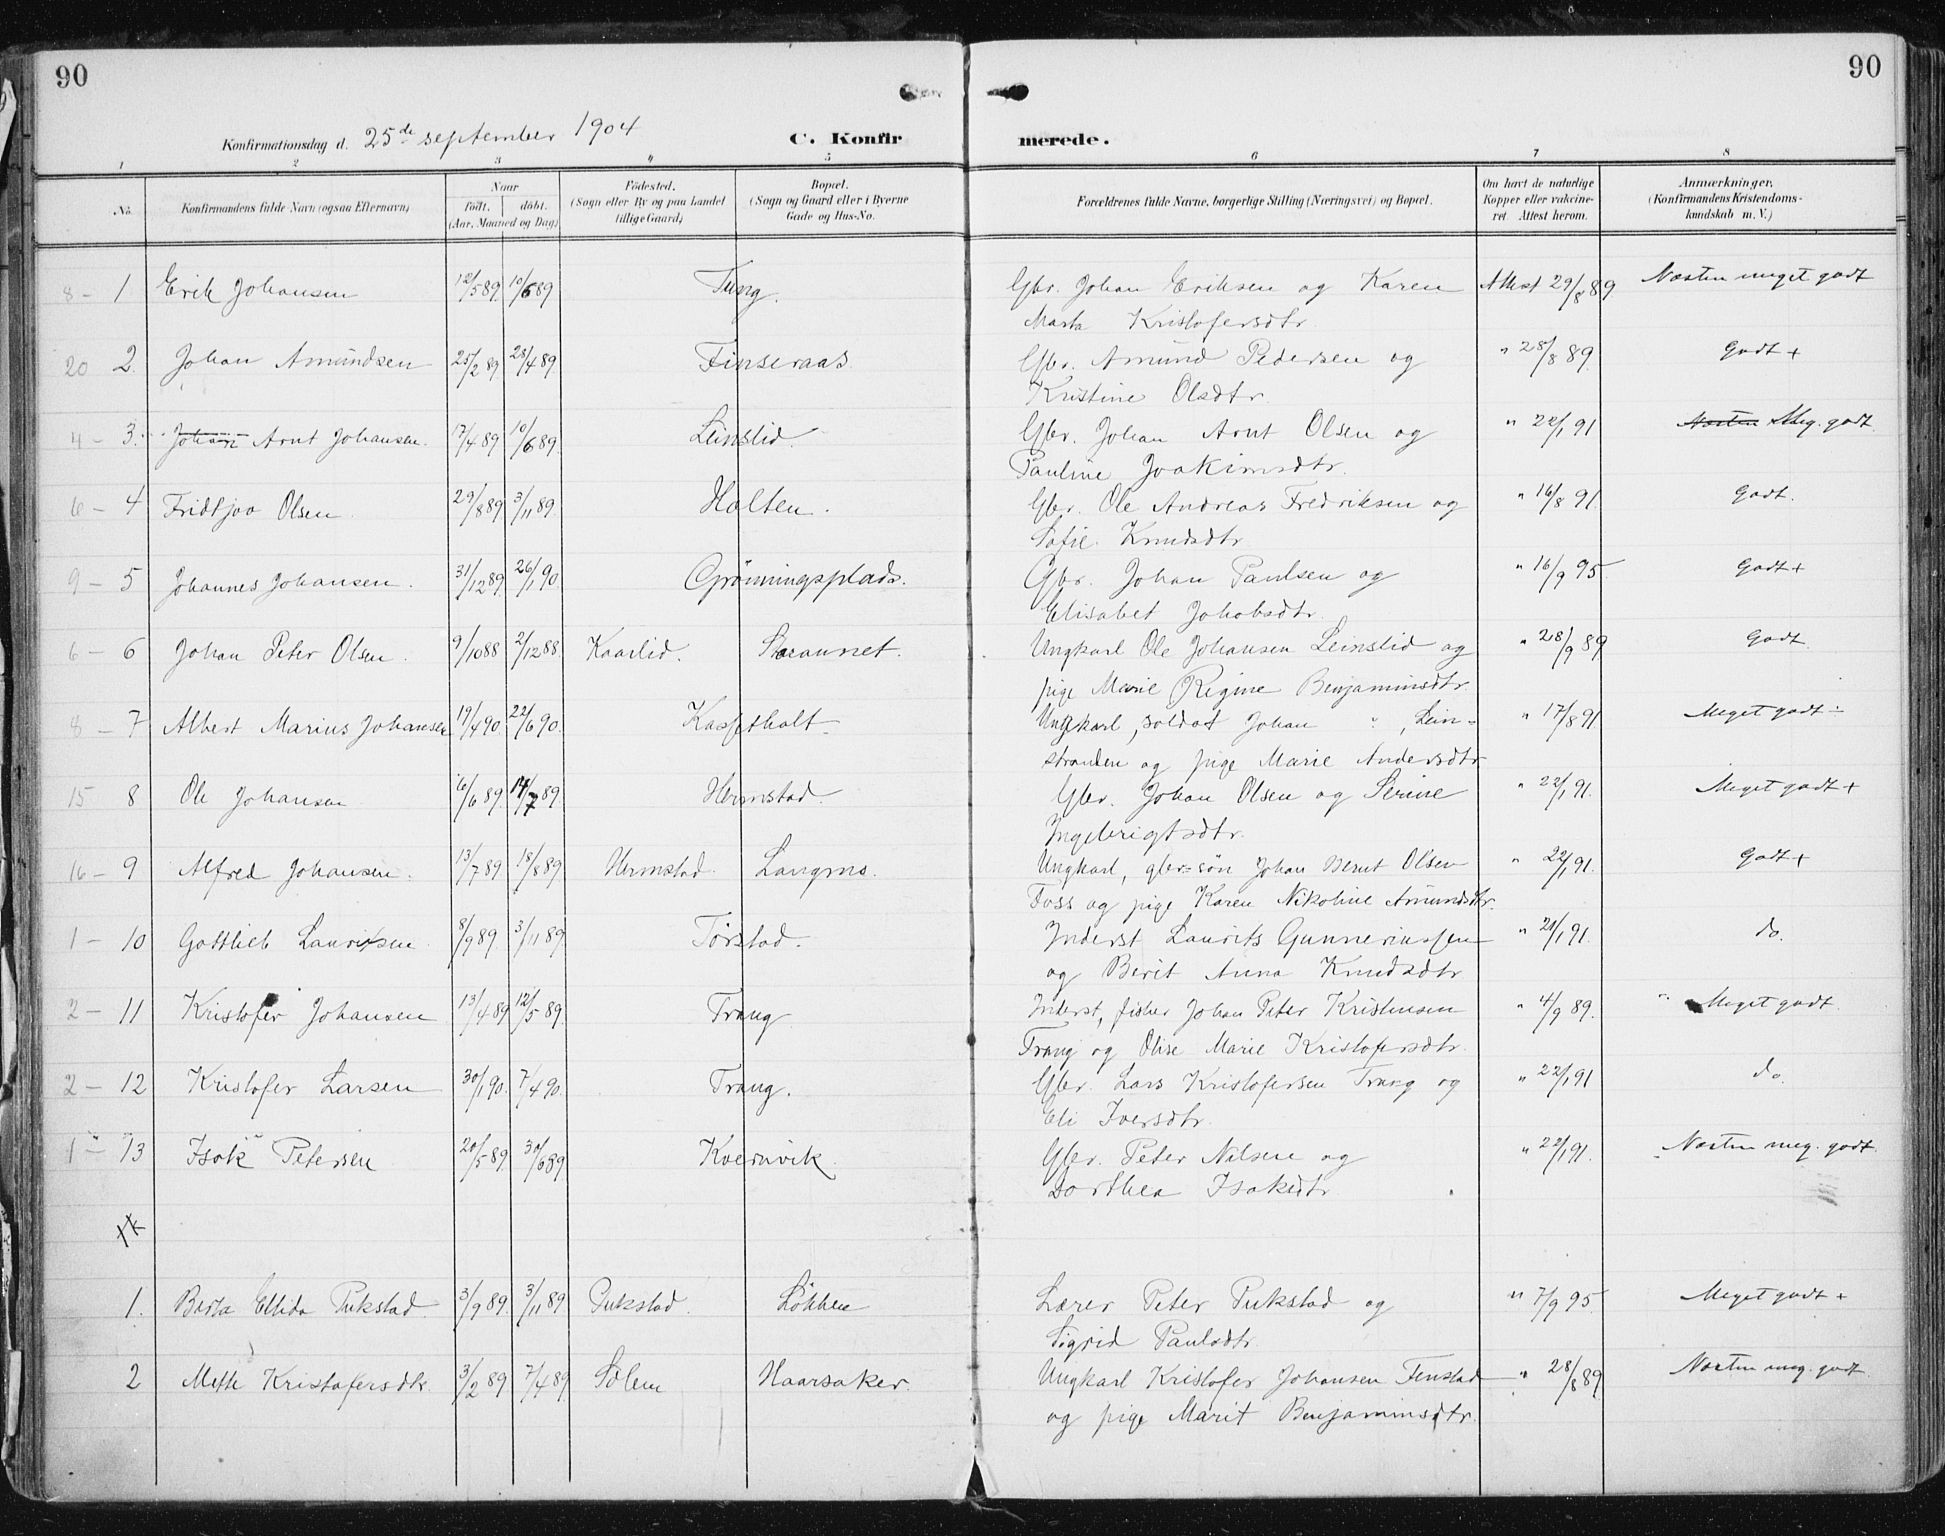 90
90
Konfirmationsdag d. 25de september 1904
C. Konfirmerede.
1 2 3 4 5 6 7 8
No. Konfirmandens fulde Navn (ogsaa Efternavn) Naar født. døbt. (Aar, Maaned og Dag) Fødested. (Sogn eller By og paa Landet tillige Gaard) Bopæl. (Sogn og Gaard eller i Byerne Gade og Hus-No. Forældrenes fulde Navne, borgerlige Stilling (Næringsvei) og Bopæl. Om havt de naturlige Kopper eller vakcineret. Attest herom. Anmærkninger. (Konfirmandens Kristendomskundskab m. V.)
8 - 1 Erik Johansen 12/5 89 10/6 89 Tung. Gbr. Johan Eriksen og Karen Attest 29/8 89 Næsten meget godt
Marta Kristofersdtr
20 2 Johan Amundsen 25/2 89 28/4 89. Finseraas Gbr. Amund Pedersen og " 28/8 89. Godt +
Kristine Olsdtr.
4 - 3. Johan Arnt Johansen. 17/4 89 10/6 89. Leinslid. Gbr. Johan Arnt Olsen og " 22/1 91 Næsten Meg. godt
Pauline Joakimsdtr.
6 - 4 Fridtjov Olsen 29/8 89 3/11 89. Holten. Gbr. Ole Andreas Fredriksen og " 16/8 91. Godt.
Sofie Knudsdtr.
9 - 5 Johannes Johansen. 31/12 89 26/1 90. Grönningsplads. Gbr. Johan Paulsen og " 16/9 95. Godt +
Elisabet Jakobsdtr.
6 - 6 Johan Peter Olsen. 9/10 88 2/12 88. Kaarlid. Straumet. Ungkarl Ole Johansen Leinslid og " 28/9 89 Godt
pige Marie Regine Benjaminsdtr.
8 - 7 Albert Marius Johansen 19/4 90. 22/6 90. Kasfethalt. Ungkarl, soldat Johan " , Lein- " 17/8 91 Meget godt ÷
stranden og pige Marie Andersdtr
15 8 Ole Johansen 16/6 89. 14/7 89. Hermstad. Gbr. Johan Olsen og Serine " 22/1 91. Meget godt +
Ingebrigtsdtr.
16 - 9 Alfred Johansen. 13/7 89 18/8 89 Hermstad. Langms. Ungkarl, gbr-søn Johan Bernt Olsen " 22/1 91. Godt +
Foss og pige Karen Nikoline Amundsdtr.
1 - 10 Gottlieb Lauritsen 8/9 89. 3/11 89. Tørstad. Inderst Laurits Gunneriussen " 21/1 91. do.
og Berit Anna Knudsdtr
2 - 11 Kristofer Johansen 13/4 89 12/5 89. Trang Inderst, fisker Johan Peter Kristensen " 4/9 89. Meget godt.
Trang og Olise Marie Kristofersdtr.
2 - 12 Kristofer Larsen 30/1 90. 7/4 90. Trang. Gbr. Lars Kristofersen Trang og " 22/1 91 do.
Eli Iversdtr.
1 - 13 Isak Petersen 20/5 89. 30/6 89 Kvernvik. Gbr. Peter Nilsen og " 22/1 91. Næsten meg. godt
Dorthea Isaksdtr
1. Berta Ellida Pukstad 3/9 89. 3/11 89 Pukstad. Løkken Lærer Peter Pukstad og " 7/9 95 Meget godt +
Sigrid Paulsdtr.
2 Mette Kristofersdtr. 3/2 89 7/4 89 Solem Haarsaker. Ungkarl Kristofer Johansen Fenstad " 28/8 89 Næsten meg. godt
og pige Marit Benjaminsdtr.